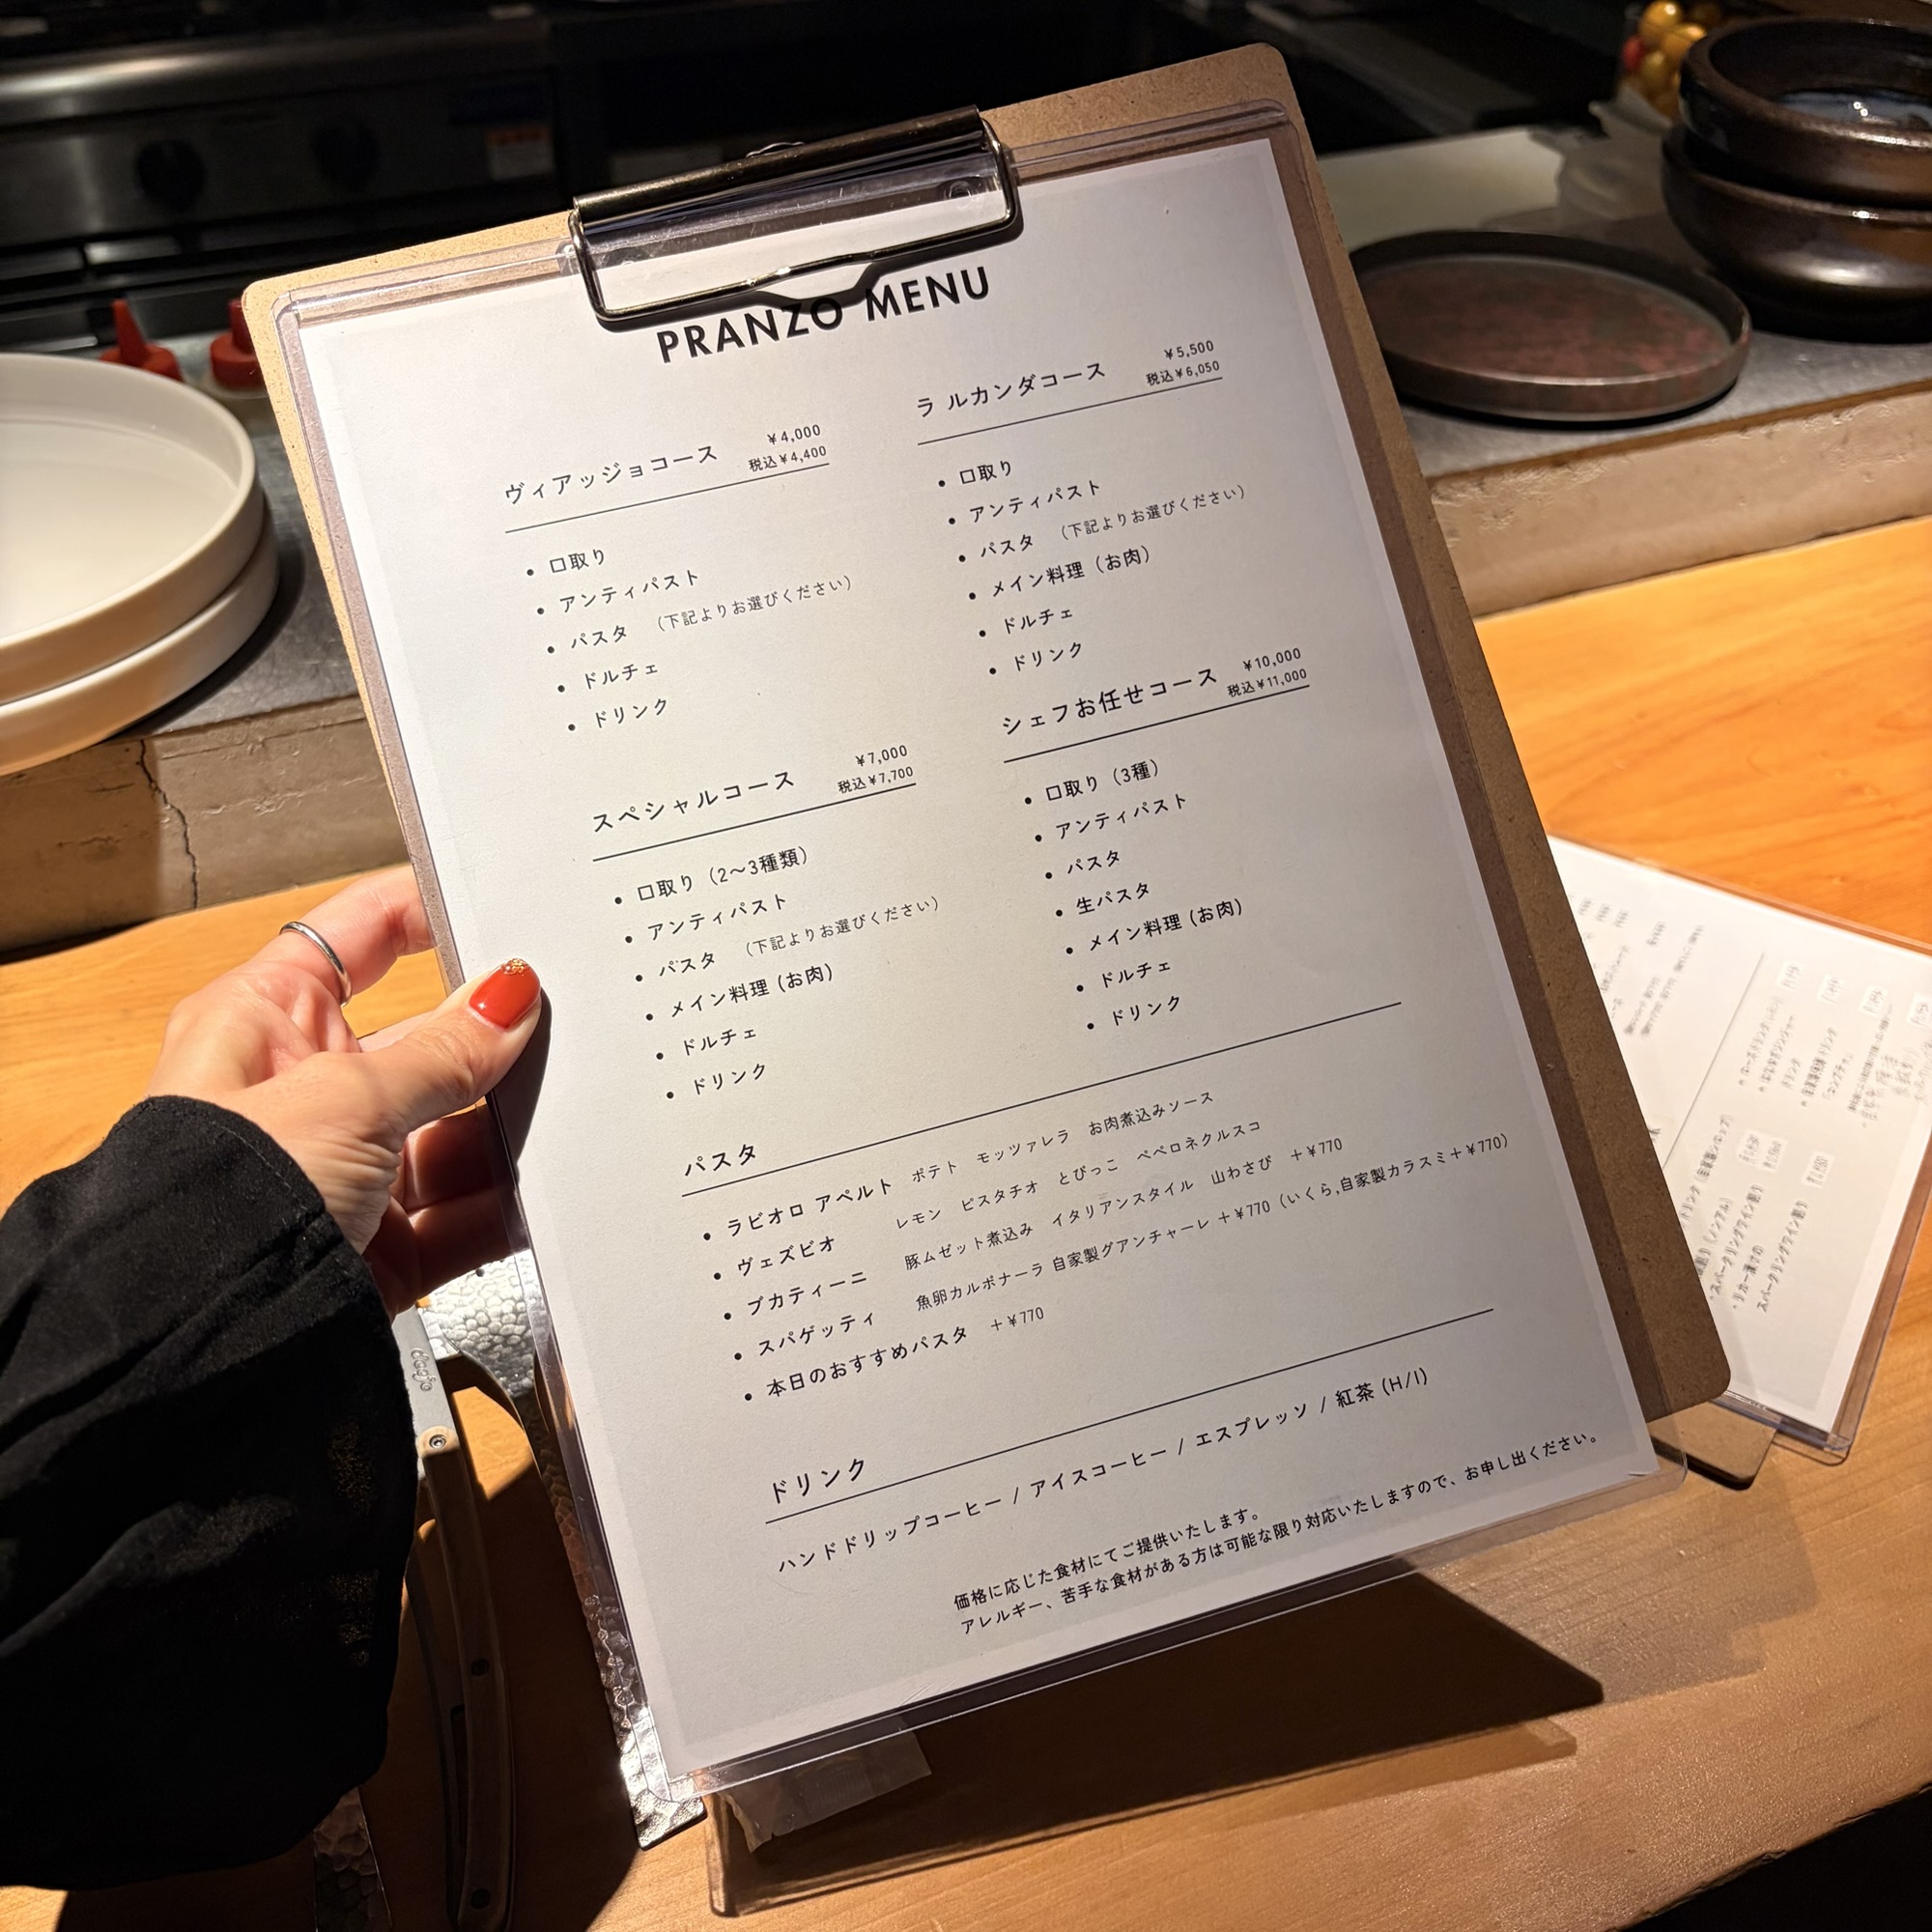 PRANZO MENU
ヴィアッジョコース
¥4,000
税込¥4,400
・口取り
・アンティパスト
・パスタ （下記よりお選びください）
・ドルチェ
・ドリンク
ラ ルカンダコース
¥5,500
税込¥6,050
・口取り
・アンティパスト
・パスタ （下記よりお選びください）
・メイン料理（お肉）
・ドルチェ
・ドリンク
スペシャルコース
¥7,000
税込¥7,700
・口取り（2〜3種類）
・アンティパスト
・パスタ （下記よりお選びください）
・メイン料理 (お肉)
・ドルチェ
・ドリンク
シェフお任せコース
¥10,000
税込¥11,000
・口取り（3種）
・アンティパスト
・パスタ
・生パスタ
・メイン料理 (お肉)
・ドルチェ
・ドリンク
パスタ
・ラビオロ アペルト ポテト モッツァレラ お肉煮込みソース
・ヴェズビオ レモン ピスタチオ とびっこ ペペロネクルスコ
・ブカティーニ 豚ムゼット煮込み イタリアンスタイル 山わさび ＋¥770
・スパゲッティ 魚卵カルボナーラ 自家製グアンチャーレ ＋¥770（いくら,自家製カラスミ＋¥770）
・本日のおすすめパスタ ＋¥770
ドリンク
ハンドドリップコーヒー / アイスコーヒー / エスプレッソ / 紅茶 (H/I)
価格に応じた食材にてご提供いたします。
アレルギー、苦手な食材がある方は可能な限り対応いたしますので、お申し出ください。